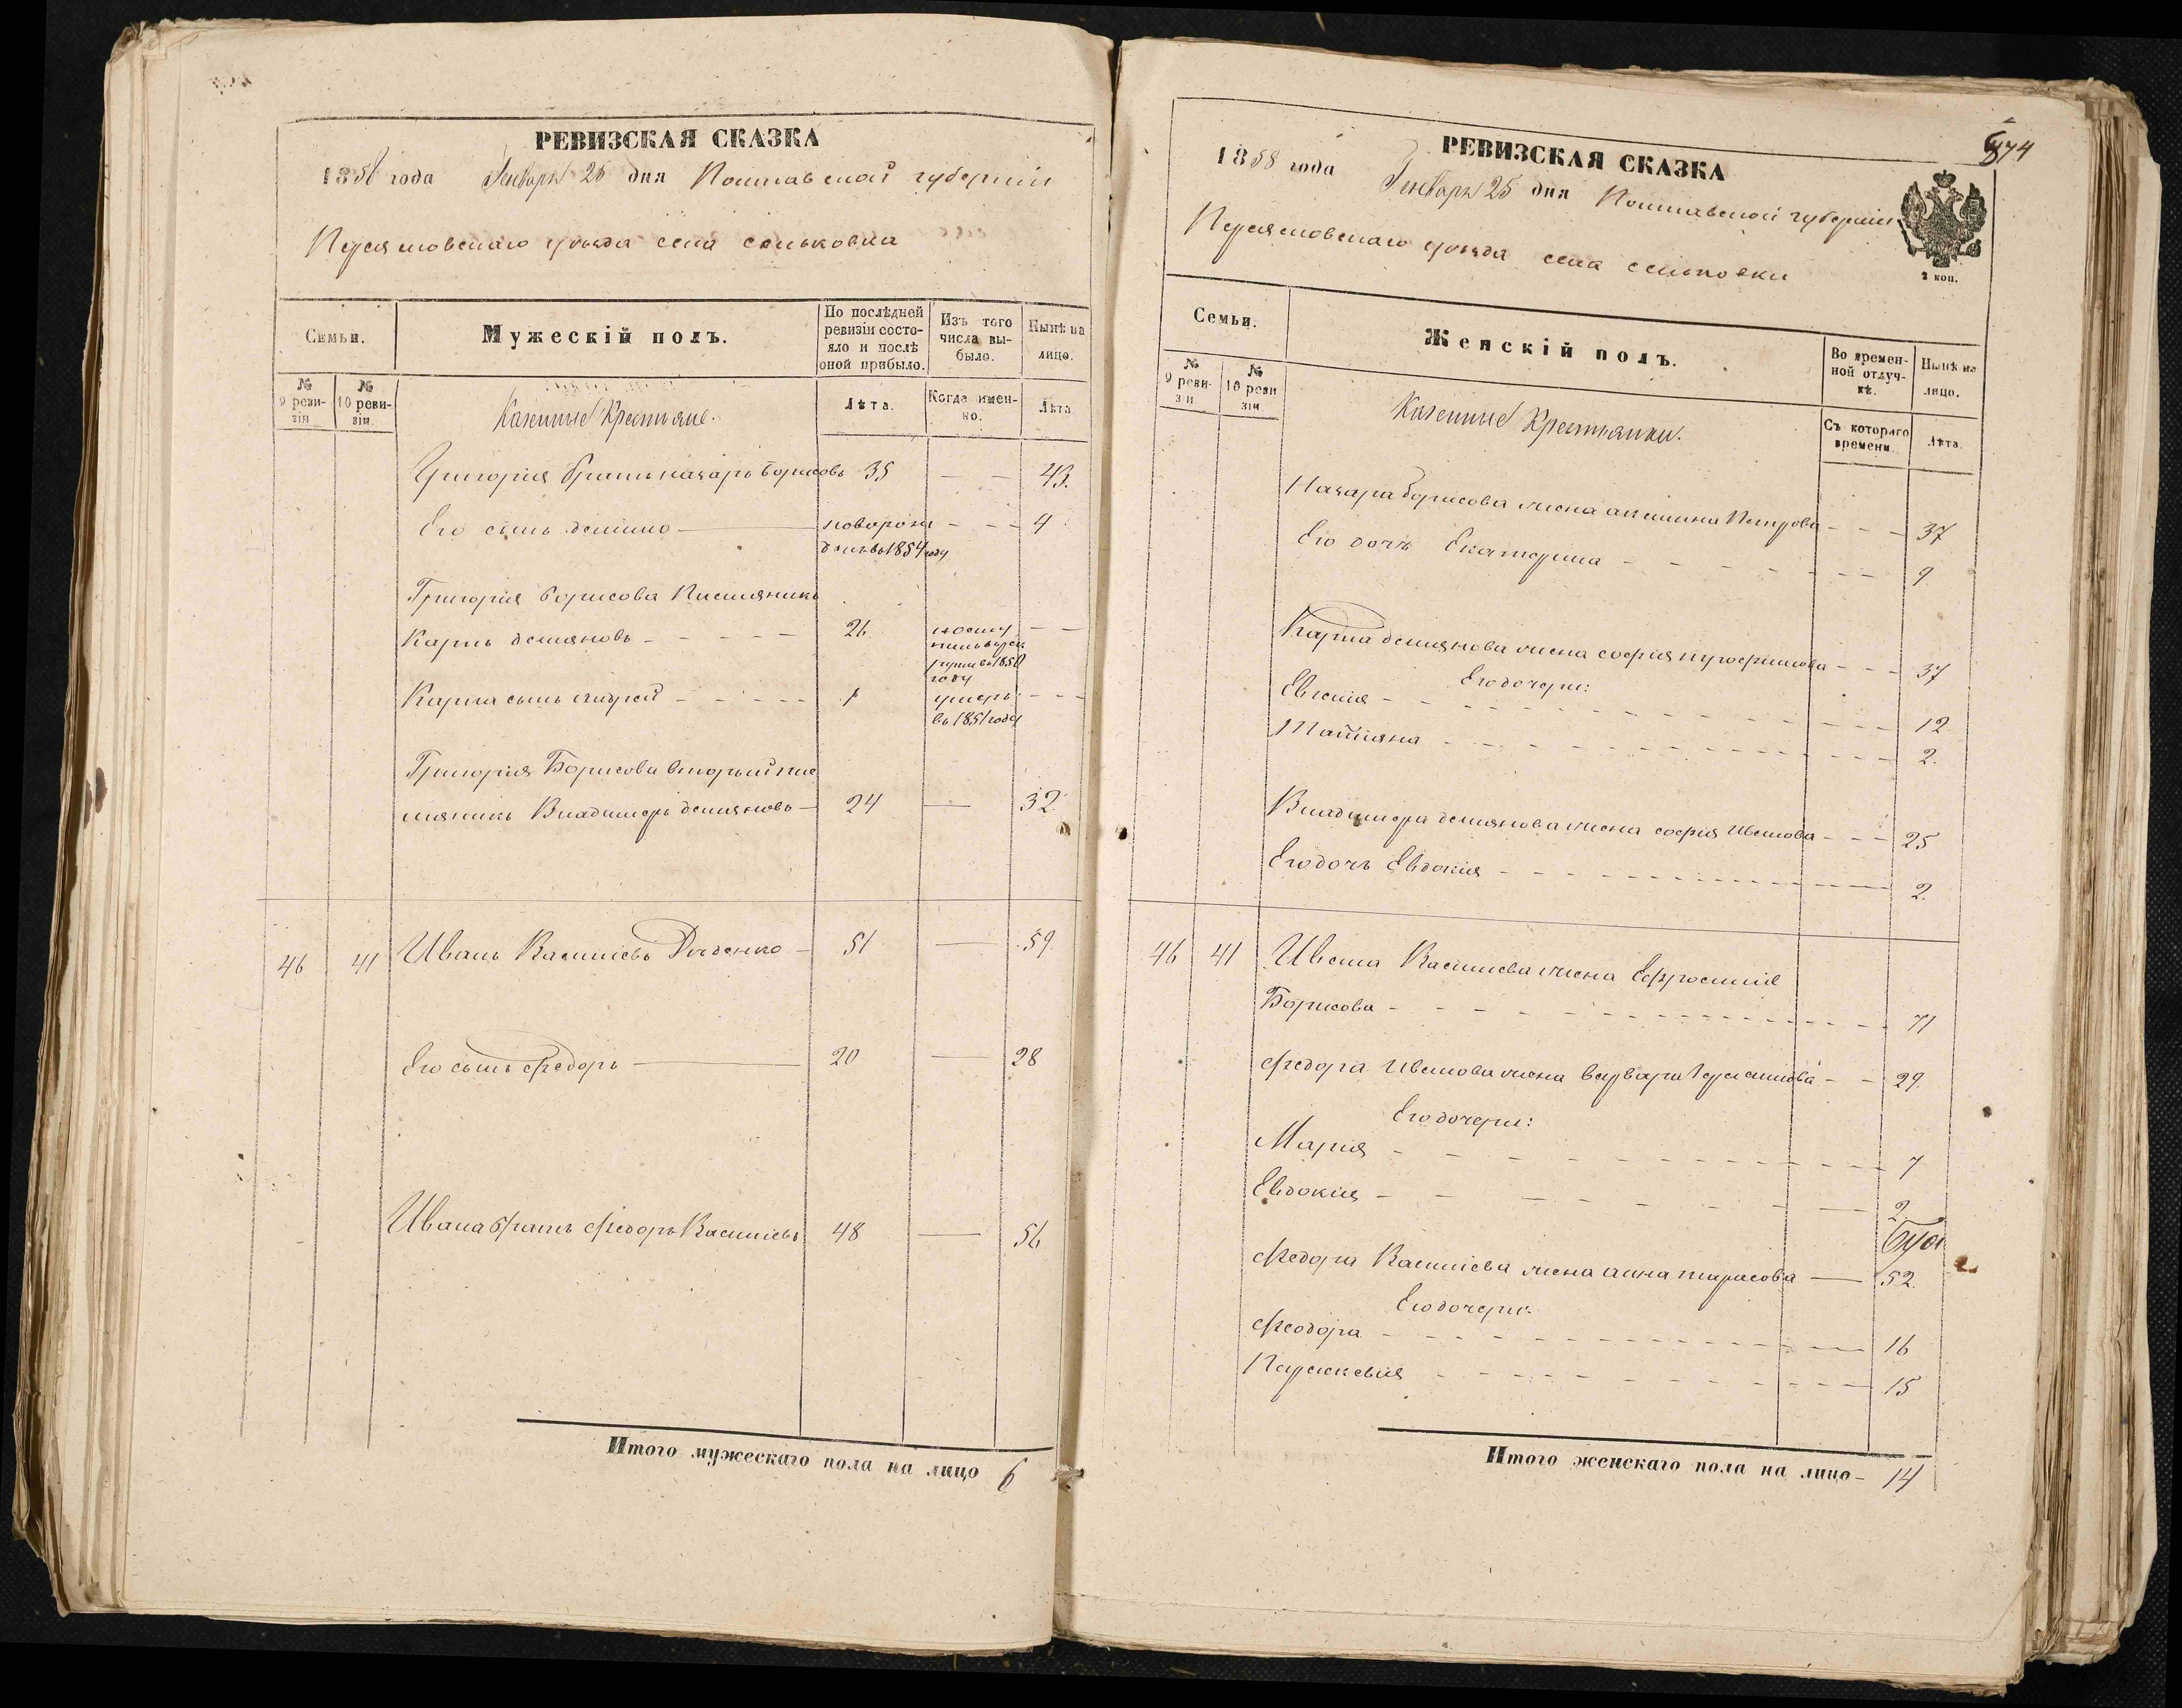 РЕВИЗСКАЯ СКАЗКА
1858 года Генваря 25 дня Полтавской губернии
Переяславскаго уезда села сеньковка
Семьи.
Мужескій полъ.
По послѣдней ревизіи состояло и послѣ оной прибыло.
Изъ того числа выбыло.
Нынѣ на лицо.
№ 9 ревизіи
№ 10 ревизіи
Казенные Крестьяне.
Лѣта.
Когда именно.
Лѣта
Григорія братъ назаръ борисовъ 35 — — 43.
Его сынъ демидъ — новорож денъ въ 1854 году - - - 4
Григорія борисова Племяникъ
Карпъ демяновъ - - - - - 26
въ 1851 году
Карпа сынъ андрей - - - - - 1 умеръ въ 1851 году - - -
Григорія Борисова вторый пле
мяникъ Владимеръ демяновъ — 24 — 32.
46 41 Иванъ Василіевъ Дяденко — 51 — 59.
Его сынъ Федоръ — 20 — 28
Ивана братъ Федоръ Василіевъ 48 — 56
Итого мужескаго пола на лицо 6
874
РЕВИЗСКАЯ СКАЗКА
1858 года Генваря 25 дня Полтавской губерніи
Переяславскаго уезда села сеньковки
2 коп.
Семьи.
Женскій полъ.
Во временной отлучкѣ.
Нынѣ на лицо.
№ 9 ревизіи
№ 10 ревизіи
Казенные Крестьянки.
Съ котораго времени
Лѣта.
Назара борисова жена акилина Петрова - - - 37
Его дочь Екатерина - - - - - - - - 9
Карпа демянова жена софія трофимова - - - 37
Его дочери:
Евгенія - - - - - - - - 12
Татіяна - - - - - - - - 2.
Владимера демянова жена софія Иванова - - - 25
Его дочь Евдокія - - - - - - - - 2.
46 41 Ивана Василіева жена Ефросинія
Борисова - - - - - - - - 71
Федора Иванова жена варвара Герасимова - - 29.
Его дочери:
Марія - - - - - - - - 7
Евдокія - - - - - - - - 2
Федора Василіева жена анна тарасова — 52.
Его дочери:
Феодора - - - - - - - - 16
Параскевія - - - - - - - - 15
Итого женскаго пола на лицо - 14